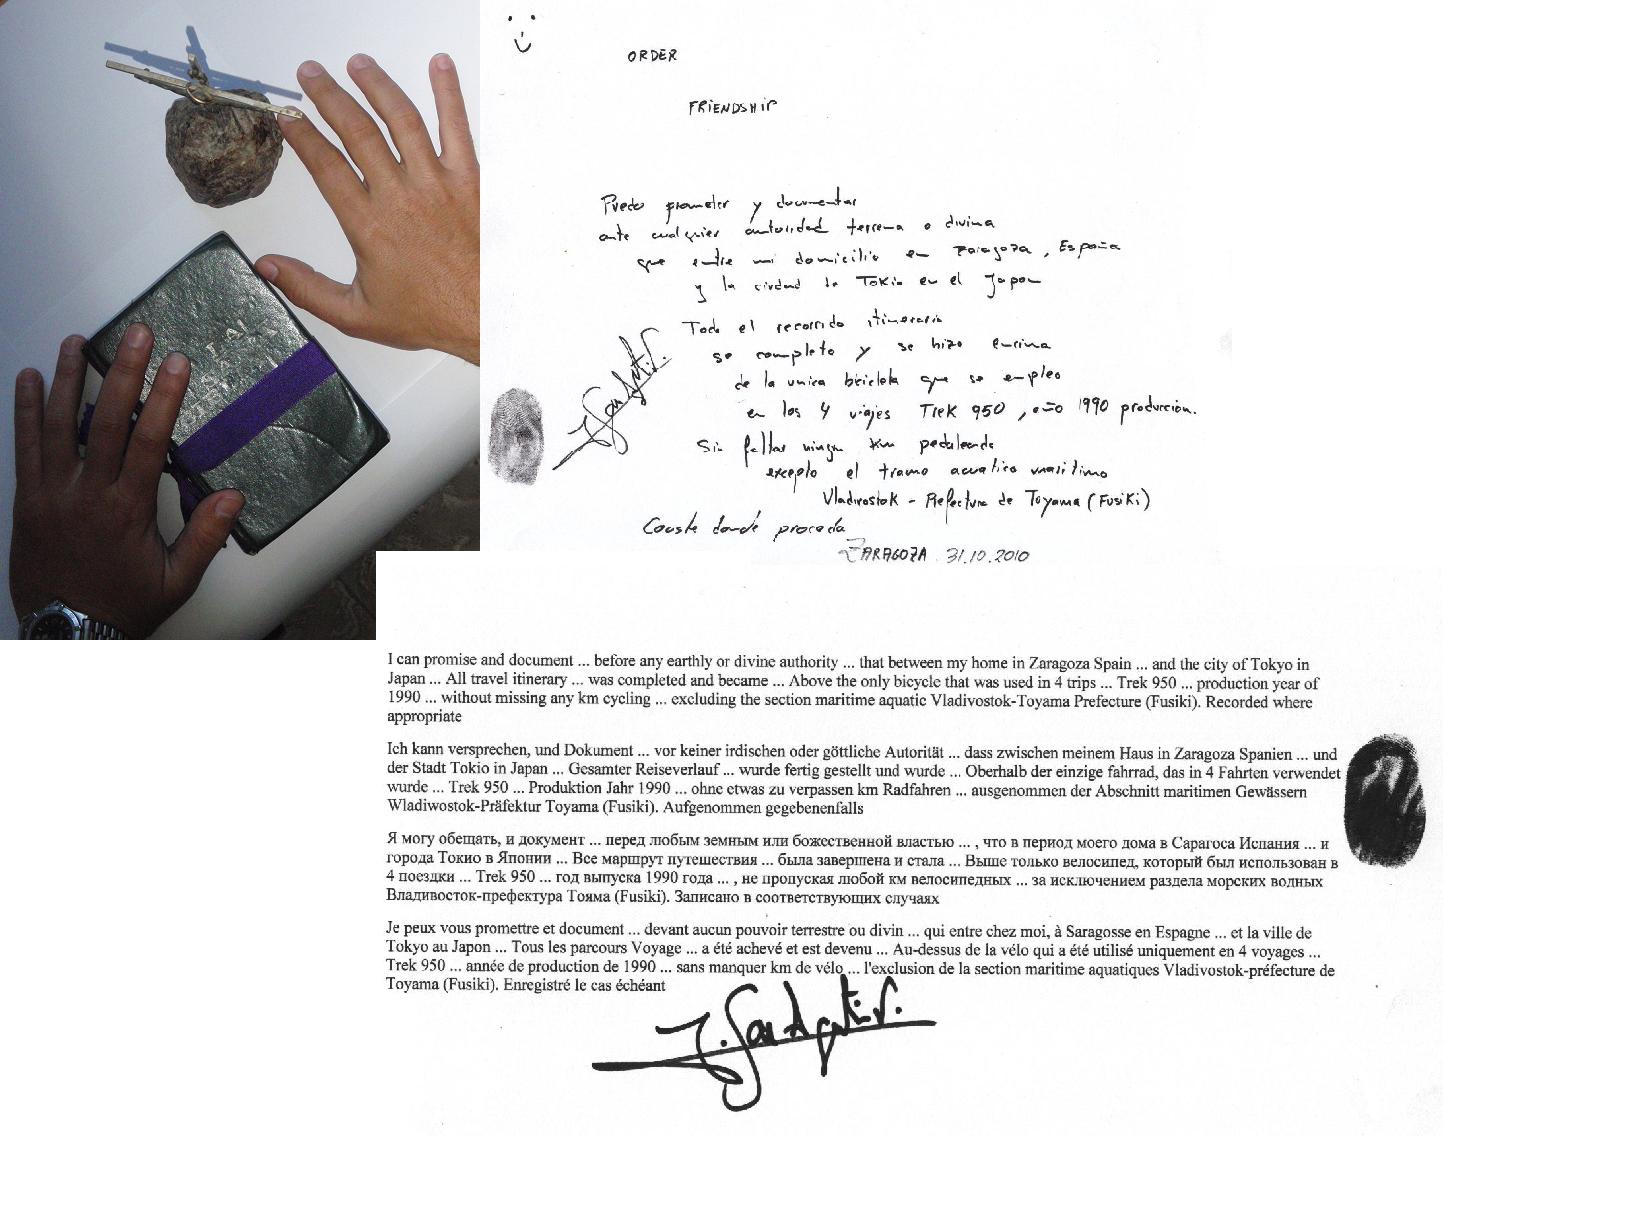 ORDER
FRIENDSHIP
Puedo prometer y documentar
ante cualquier autoridad terrena o divina
que entre mi domicilio en Zaragoza, España
y la ciudad de Tokio en el Japon
Todo el recorrido itinerario
se completo y se hizo encima
de la unica bicicleta que se empleo
en los 4 viajes TREK 950, año 1990 producción.
Sin faltar ningun km pedaleando
excepto el tramo acuatico maritimo
Vladivostok - Prefectura de Toyama (FUSIKI)
Conste donde proceda
ZARAGOZA 31.10.2010
I can promise and document ... before any earthly or divine authority ... that between my home in Zaragoza Spain ... and the city of Tokyo in
Japan ... All travel itinerary ... was completed and became ... Above the only bicycle that was used in 4 trips ... Trek 950 ... production year of
1990 ... without missing any km cycling ... excluding the section maritime aquatic Vladivostok-Toyama Prefecture (Fusiki). Recorded where
appropriate
Ich kann versprechen, und Dokument ... vor keiner irdischen oder göttliche Autorität ... dass zwischen meinem Haus in Zaragoza Spanien ... und
der Stadt Tokio in Japan ... Gesamter Reiseverlauf ... wurde fertig gestellt und wurde ... Oberhalb der einzige fahrrad, das in 4 Fahrten verwendet
wurde ... Trek 950 ... Produktion Jahr 1990 ... ohne etwas zu verpassen km Radfahren ... ausgenommen der Abschnitt maritimen Gewässern
Wladiwostok-Präfektur Toyama (Fusiki). Aufgenommen gegebenenfalls
Я могу обещать, и документ ... перед любым земным или божественной властью ... , что в период моего дома в Сарагоса Испания ... и
города Токио в Японии ... Все маршрут путешествия ... была завершена и стала ... Выше только велосипед, который был использован в
4 поездки ... Trek 950 ... год выпуска 1990 года ... , не пропуская любой км велосипедных ... за исключением раздела морских водных
Владивосток-префектура Тояма (Fusiki). Записано в соответствующих случаях
Je peux vous promettre et document ... devant aucun pouvoir terrestre ou divin ... qui entre chez moi, à Saragosse en Espagne ... et la ville de
Tokyo au Japon ... Tous les parcours Voyage ... a été achevé et est devenu ... Au-dessus de la vélo qui a été utilisé uniquement en 4 voyages ...
Trek 950 ... année de production de 1990 ... sans manquer km de vélo ... l'exclusion de la section maritime aquatiques Vladivostok-préfecture de
Toyama (Fusiki). Enregistré le cas échéant